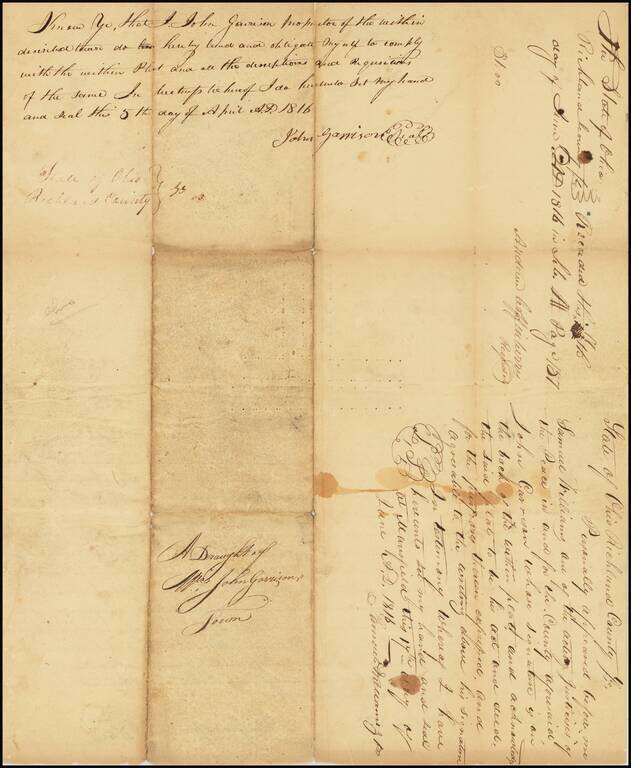 Know Ye, that I John Garrison Proprietor of the within
described town do hereby bind and obligate Myself to comply
with the within Plat and all the descriptions and Requisitions
of the same In testimony whereof I do hereunto Set my hand
and seal this 5th day of April A.D 1816
John Garrison Seal
State of Ohio
Richland County ss
A Draught of
John Garrisons
Town
$1.00
The State of Ohio
Richland County Recorded this
day of June AD 1816 in Page 137
Andrew
Recorder
State of Ohio Richland County Ss
Personally appeared before me
Samuel Williams one of the acting Justices of
the Peace in and for the County aforesaid,
John Garrison whose signature is on
the back of the within plat and acknowledged
the said plat to be his act and deed,
for the purposes therein expressed, and
agreeable to the writing above his signature
In testimony whereof I have
hereunto set my hand and seal
at Mansfield this 17th day of
June A.D. 1816
Samuel Williams J P